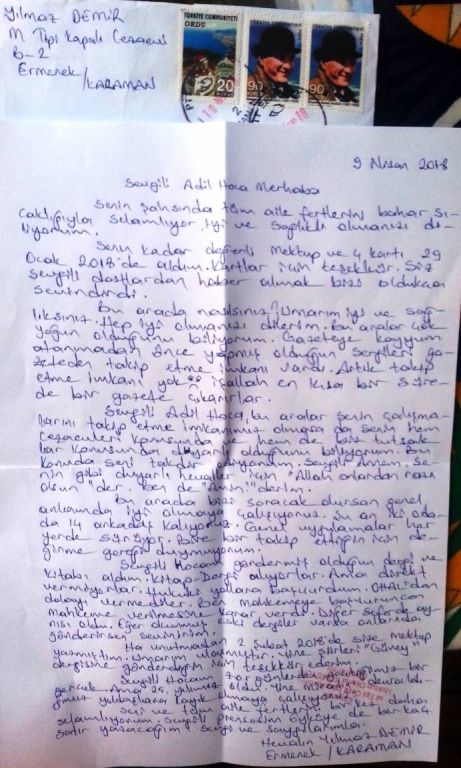 Yılmaz DEMİR
M Tipi Kapalı Cezaevi
B-2
Ermenek
/KARAMAN
TÜRKİYE CUMHURİYETİ
ORDU
20
TÜRKİYE CUMHURİYETİ
90
TÜRKİYE CUMHURİYETİ
90
9 Nisan 2018
Sevgili Adil Hoca Merhaba
Senin şahsında tüm aile fertlerini bahar sı-
caklığıyla selamlıyor, iyi ve sağlıklı olmanızı di-
liyorum.
Senin kadar değerli mektup ve 4 kartı 29
Ocak 2018'de aldım. Kartlar için teşekkür. Siz
sevgili dostlardan haber almak bizi oldukça
sevindirdi.
Bu arada nasılsınız? Umarım iyi ve sağ-
lıksınız. Hep iyi olmanızı dilerim. Bu aralar çok
yoğun olduğunu biliyorum. Gazeteye kayyum
atanmadan önce yapmış olduğun sergileri ga-
zeteden takip etme imkanı vardı. Artık takip
etme imkanı yok. İşallah en kısa bir süre-
de bir gazete çıkarırlar.
Sevgili Adil Hoca, bu aralar senin çalışma-
larını takip etme imkanımız olmasa da senin hem
cezaevleri konusunda ve hem de biz tutsak-
lar konusunda duyarlı olduğunu biliyorum. Bu
konuda seni takdir ediyorum. Sevgili Annem, se-
nin gibi duyarlı hevaller için "Allah onlardan razı
olsun" der. Ben de "Amin" derim.
Bu arada bizi soracak olursan genel
anlamında iyi olmaya çalışıyoruz. Şu an iki oda-
da 14 arkadaş kalıyoruz. Genel uygulamalar her
yerde sürüyor. Bire bir takip ettiğin için de-
ğinme gereği duymuyorum.
Sevgili Hocam göndermiş olduğun dergi ve
kitabı aldım. Kitap-Dergi alıyorlar. Ama direkt
vermiyorlar. Hukuki yollara başvurdum. OHAL'dan
dolayı vermediler. Ben Mahkemeye başvurunca
Mahkeme verilmesine karar verdi. Diğer seferde ay-
nısı oldu. Eğer okunmuş eski dergiler varsa onlarında
gönderirsen sevinirim.
Ha unutmadan 2 Şubat 2018'de size mektup
yazmıştım. Umarım ulaşmıştır. Yine şiirleri "Güney"
dergisine gönderdiğin için teşekkür ederim.
Sevgili Hocam zor günlerden geçtiğimiz bir
gerçek. Ama 25. yılımız oldu. Yine
yoldaşlara layık olmaya çalışıyoruz.
Seni ve tüm aile fertlerini bir kez daha
selamlıyorum. Sevgili de bir kaç
satır yazacağım. Sevgi ve saygılarımla.
Hevalin Yılmaz DEMİR
Ermenek/KARAMAN